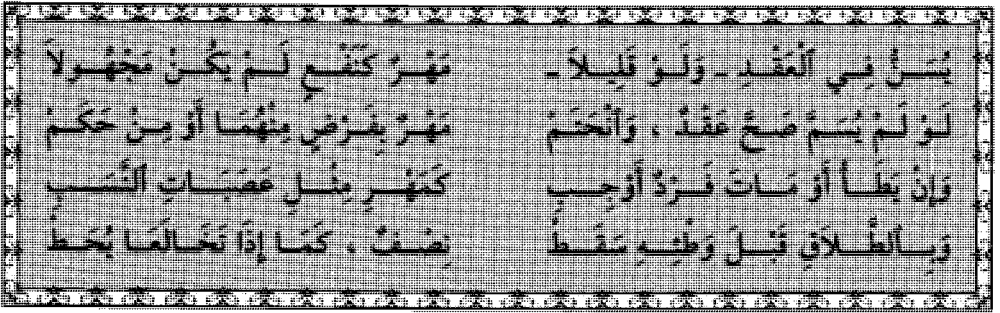 يُسَنُّ فِي ٱلْعَقْدِ - وَلَوْ قَلِيلاً - مَهْرٌ كَنَفْعٍ لَمْ يَكُنْ مَجْهُولاَ
لَوْ لَمْ يُسَمَّ صَحَّ عَقْدٌ ، وَٱنْحَتَمْ مَهْرٌ بِفَرْضٍ مِنْهُمَا أَوْ مِنْ حَكَمْ
وَإِنْ يَطَأْ أَوْ مَاتَ فَرْدٌ أَوْجِبِ كَمَهْرِ مِثْلِ عَصَبَاتِ ٱلنَّسَبِ
وَبِٱلطَّلاَقِ قَبْلَ وَطْئِهِ سَقَطْ نِصْفٌ ، كَمَا إِذَا تَخَالَعَا يُحَطْ